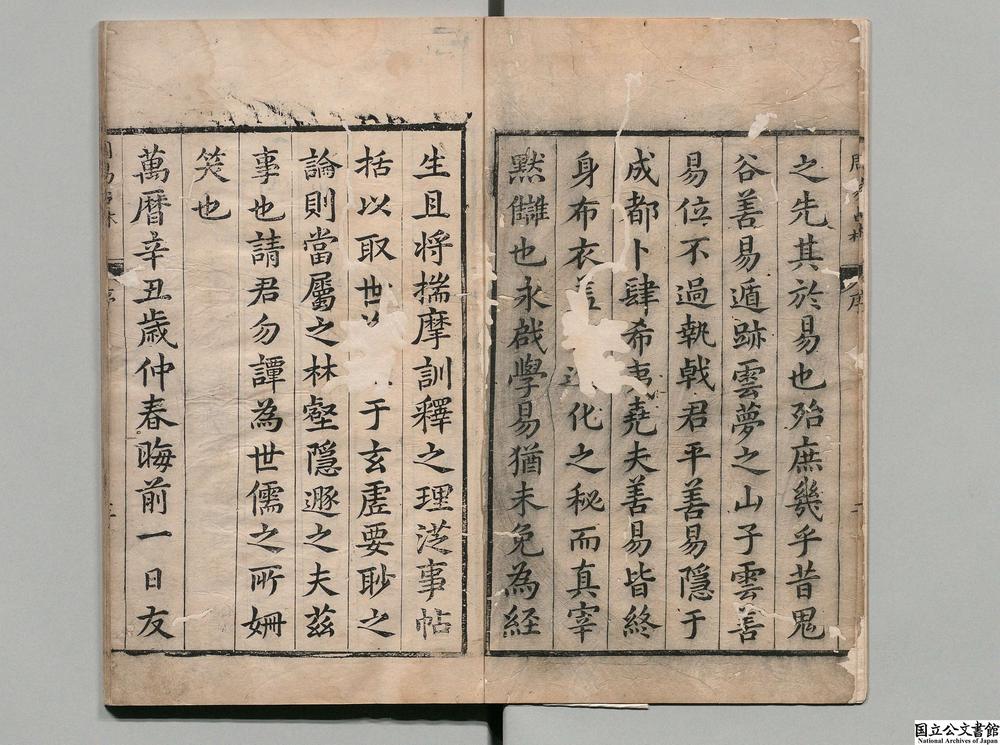 之先其於易也殆庶幾乎昔鬼
谷善易遁跡雲夢之山子雲善
易位不過執戟君平善易隱于
成都卜肆希夷堯夫善易皆終
身布衣 化之秘而真宰
黙讎也永啟學易猶未免為経
生且將揣摩訓釋之理從事帖
括以取世 于玄虛要眇之
論則當屬之林壑隱遯之夫茲
事也請君勿譚為世儒之所姍
笑也
萬曆辛丑歲仲春晦前一日友
序
国立公文書館
National Archives of Japan